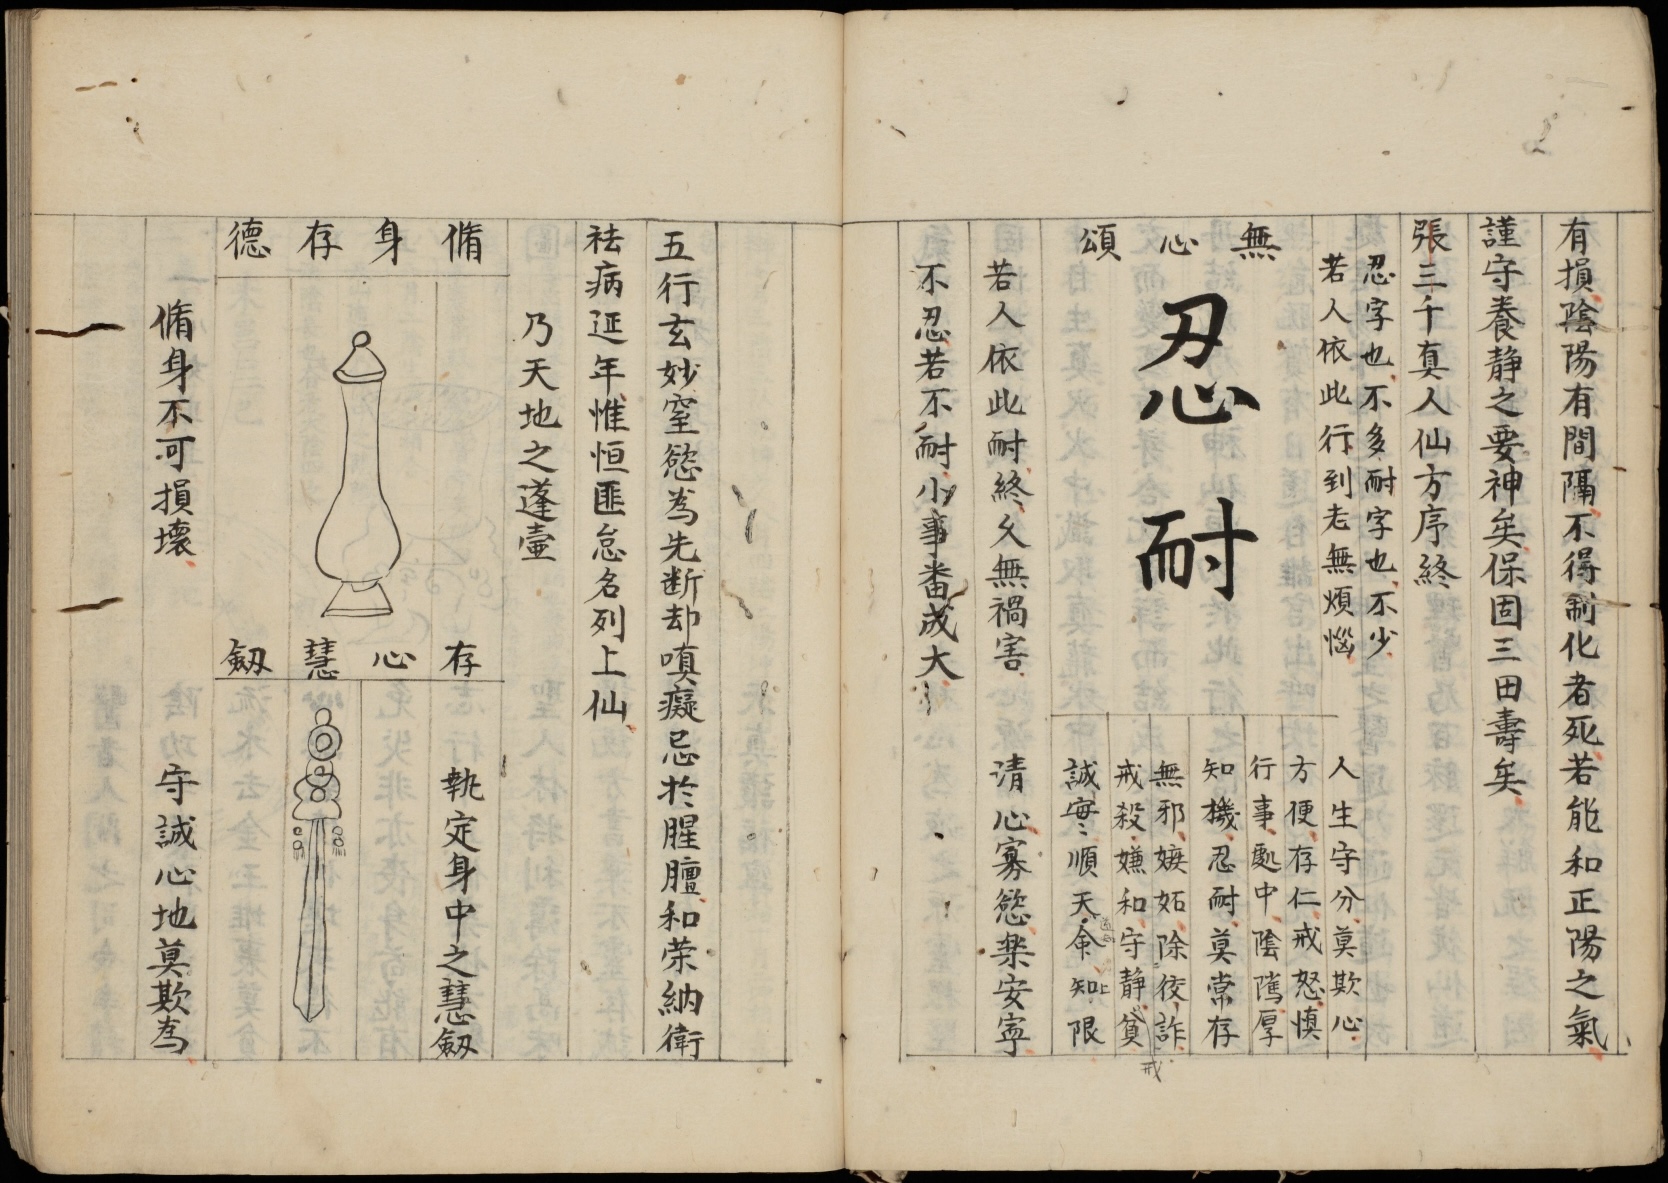 有損陰陽有間隔不得制化者死若能和正陽之氣
謹守養静之要神矣保固三田壽矣
張三千真人仙方序終
忍字也不多耐字也不少
若人依此行到老無煩惱
人生守分莫欺心
方便存仁戒怒慎
行事處中陰隲厚
知機忍耐莫常存
無邪嫉妬除狡詐
戒殺嫌和守静貧
戒
誠寔順天命知限
無心頌
忍耐
若人依此耐終久無禍害
清心寡慾楽安寧
不忍若不耐小事番成大
五行玄妙窒慾為先断却嗔癡忌於腥膻和荣納衛
祛病延年惟恒匪怠名列上仙
乃天地之蓬壷
脩身存德
存心慧劔
執定身中之慧劔
脩身不可損壊
守誠心地莫欺為